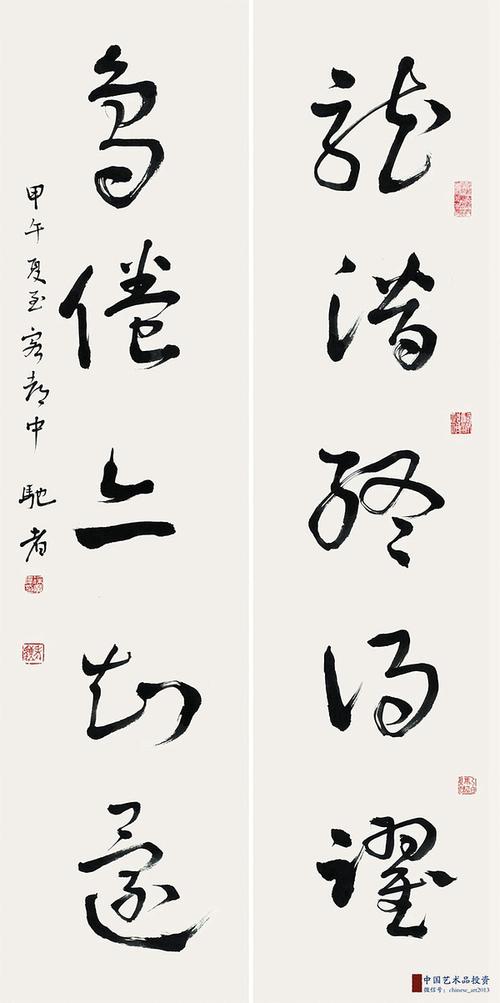 龍潛終得躍
鳥倦亦知還
甲午夏至客都中 馳者
中国艺术品投资
微信号：chinese_art2013